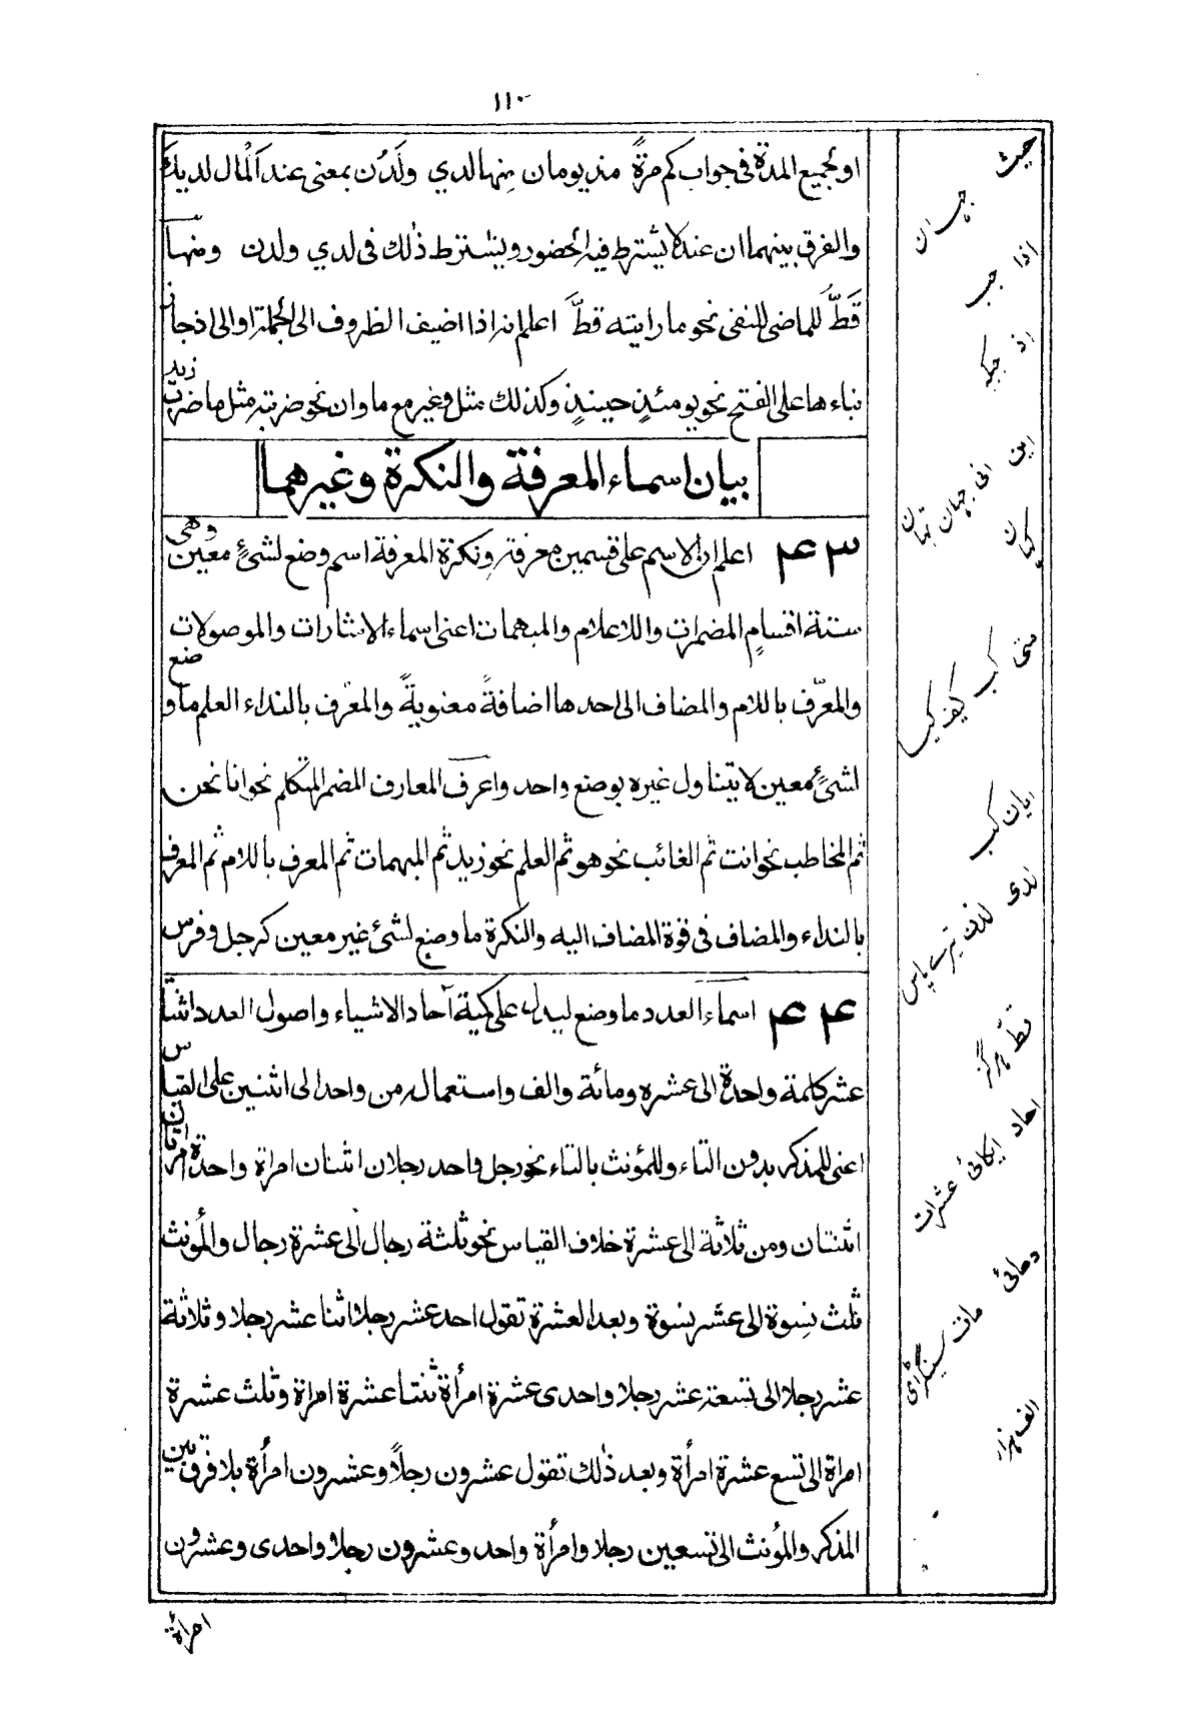 ١١٠
او لجميع المدة فى جواب كم مرةً مذ يومان منها لدي ولَدُن بمعنى عند اَلْمال لديك
والفرق بينهما ان عند لا يشترط فيه الحضور ويشترط ذٰلك فى لدي ولدن ومنها
قَطُّ للماضى للنفى نحو ما رايته قطُّ اعلم انه اذا اضيف الظروف الى الجملة او الى اذ جاز
بناءها على الفتح نحو يومئذٍ حينئذٍ وكذلك مثل وغير مع ما وان نحو ضربته مثل ما ضرب زيد
بيان اسماء المعرفة والنكرة وغيرهما
٤٣ اعلم ان الاسم على قسمين معرفة ونكرة المعرفة اسم وضع لشئٍ معين وهى
ستة اقسامٍ المضمرات والاعلام والمبهمات اعنى اسماء الاشارات والموصولات
والمعرّف باللام والمضاف الى احدها اضافةً معنويةً والمعرف بالنداء العلم ما وضع
لشئٍ معين لا يتناول غيره بوضع واحد واعرف المعارف المضمر المتكلم نحو انا نحن
ثم المخاطب نحو انت ثم الغائب نحو هو ثم العلم نحو زيد ثم المبهمات ثم المعرف باللام ثم المعرف
بالنداء والمضاف فى قوة المضاف اليه والنكرة ما وضع لشئ غير معين كرجل وفرس
٤٤ اسماء العدد ما وضع ليدل على كمية آحاد الاشياء واصول العدد اثنا
عشر كلمة واحدة الى عشره ومائة والف واستعماله من واحد الى اثنين على القياس
اعنى للمذكر بدون التاء وللمؤنث بالتاء نحو رجل واحد رجلان اثنان امراة واحدة امراتان
اثنتان ومن ثلاثة الى عشرة خلاف القياس نحو ثلثة رجال الى عشرة رجال والمؤنث
ثلث نسوة الى عشر نسوة وبعد العشرة تقول احد عشر رجلا اثنا عشر رجلا وثلاثة
عشر رجلا الى تسعة عشر رجلا واحدى عشرة امرأة ثنتا عشرة امراة وثلث عشرة
امراة الى تسع عشرة امرأة وبعد ذٰلك تقول عشرون رجلاً وعشرون امرأة بلا فرق بين
المذكر والمؤنث الى تسعين رجلا وامرأة واحد وعشرون رجلا واحدى وعشرون
امرأة
حيث جہان
اذا جب
اذ جبکہ
اين انى جہان
متى كب كيف كيسا
ايان كب
لدى لدن تیرے پاس
قطّ ہرگز
احاد ایکائی عشرات
دھائی مائة سینکڑا
الف ہزار